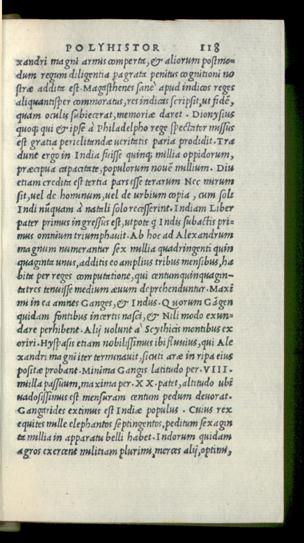 POLYHISTOR. 118
xandri magni armis comperta, & aliorum postmo-
dum regum diligentia pagrata penitus cognitioni no
stræ addita est. Magasthenes sane apud indicos reges
aliquantisper commoratus, res indicas scripsit, ut fidē,
quam oculis subiecerat, memoriæ daret. Dionysius
quoq; qui & ipse à Philadelpho rege spectator missus
est gratia periclitandæ veritatis paria prodidit. Tra
dunt ergo in India fuisse quinq; millia oppidorum,
præcipua capacitate, populorum novē millium. Diu
etiam credita est tertia pars esse terarum Nec mirum
sit, vel de hominum, vel de urbium copia, cum soli
Indi nūquam à natali solo recesserint. Indiam Liber
pater primus ingressus est, utpote q Indis subactis pri
mus omnium triumphavit. Ab hoc ad Alexandrum
magnum numerantur sex millia quadringenti quin
quaginta unus, additis eo amplius tribus mensibus, ha
bita per reges computatione, qui centumquinquagin-
tatres tenuisse medium ævum deprehenduntur. Maxi
mi in ea amnes Ganges, & Indus. Quorum Gāgen
quidam fontibus incertis nasci, & Nili modo exun-
dare perhibent. Alij volunt a Scythicis montibus ex
oriri. Hypasis etiam nobilissimus ibi fluvius, qui Ale
xandri magni iter terminavit, sicuti aræ in ripa eius
positæ probant. Minima Gangis latitudo per. VIII.
milla passuum, maxima per. XX. patet, altitudo ubi
vadosissimus est mensuram centum pedum devorat.
Gangarides extimus est Indiæ populus. Cuius rex
equites mille elephantos septingentos, peditum sexagin
ta millia in apparatu belli habet. Indorum quidam
agros exercent militiam plurimi, merces alij, optimi,